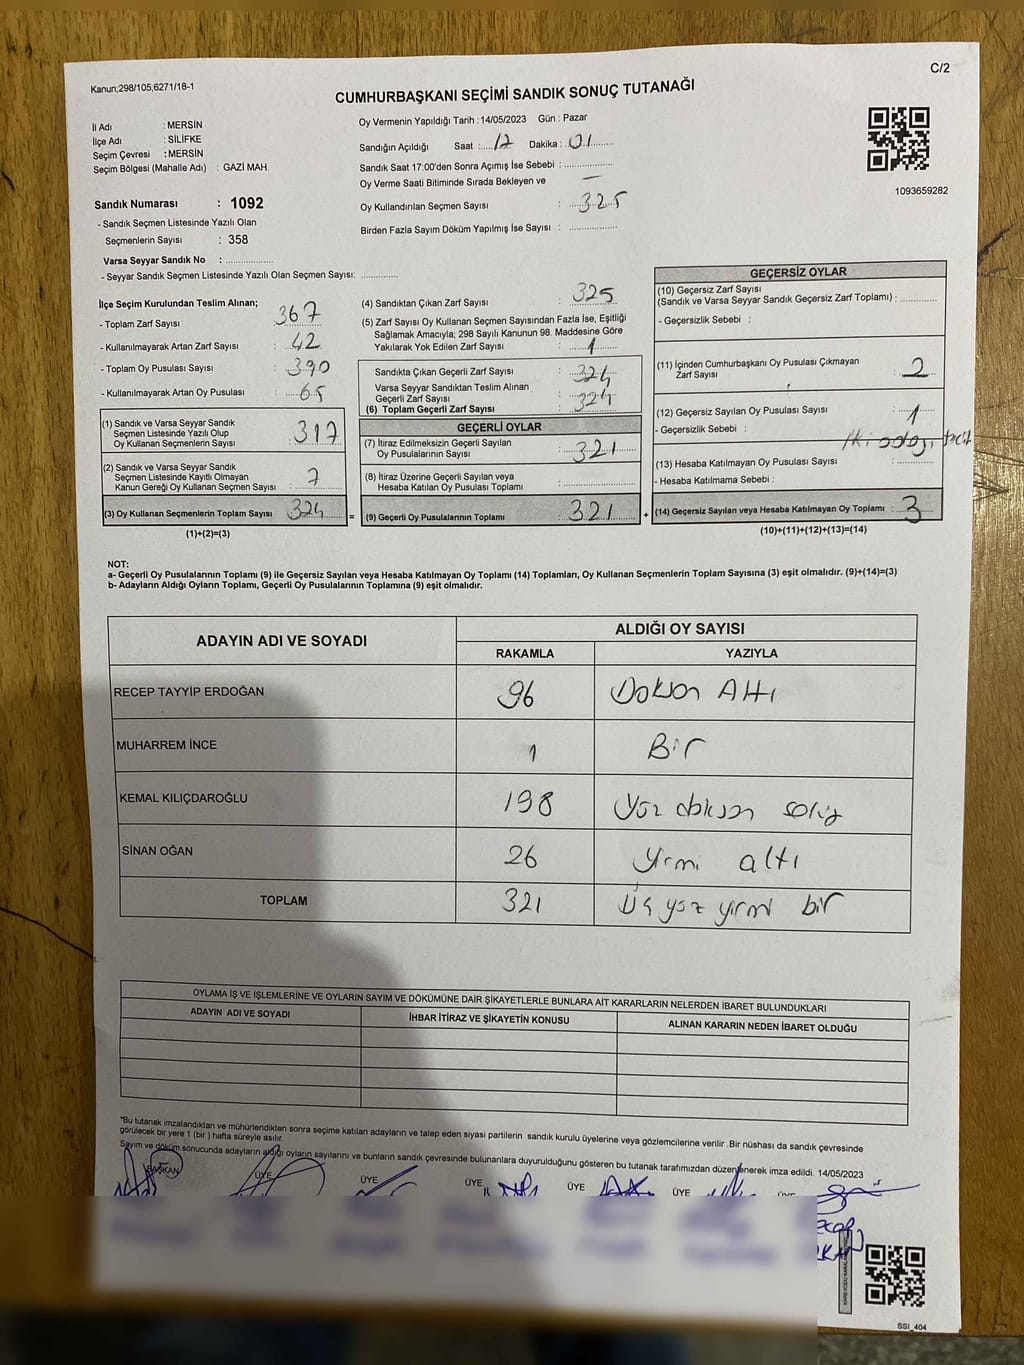 Kanun;298/105;6271/18-1
C/2
CUMHURBAŞKANI SEÇİMİ SANDIK SONUÇ TUTANAĞI
İl Adı : MERSİN
İlçe Adı : SİLİFKE
Seçim Çevresi : MERSİN
Seçim Bölgesi (Mahalle Adı) : GAZİ MAH.
Sandık Numarası : 1092
- Sandık Seçmen Listesinde Yazılı Olan
Seçmenlerin Sayısı : 358
Varsa Seyyar Sandık No : ....................
- Seyyar Sandık Seçmen Listesinde Yazılı Olan Seçmen Sayısı: .............
Oy Vermenin Yapıldığı Tarih :14/05/2023 Gün : Pazar
Sandığın Açıldığı Saat : 17 Dakika : 01
Sandık Saat 17:00'den Sonra Açımış İse Sebebi : ................
Oy Verme Saati Bitiminde Sırada Bekleyen ve —
Oy Kullandırılan Seçmen Sayısı : 325
Birden Fazla Sayım Döküm Yapılmış İse Sayısı : ................
1093659282
İlçe Seçim Kurulundan Teslim Alınan;
- Toplam Zarf Sayısı : 367
- Kullanılmayarak Artan Zarf Sayısı : 42
- Toplam Oy Pusulası Sayısı : 390
- Kullanılmayarak Artan Oy Pusulası : 65
(1) Sandık ve Varsa Seyyar Sandık
Seçmen Listesinde Yazılı Olup
Oy Kullanan Seçmenlerin Sayısı : 317
(2) Sandık ve Varsa Seyyar Sandık
Seçmen Listesinde Kayıtlı Olmayan
Kanun Gereği Oy Kullanan Seçmen Sayısı : 7
(3) Oy Kullanan Seçmenlerin Toplam Sayısı : 324
(1)+(2)=(3)
(4) Sandıktan Çıkan Zarf Sayısı : 325
(5) Zarf Sayısı Oy Kullanan Seçmen Sayısından Fazla İse, Eşitliği
Sağlamak Amacıyla; 298 Sayılı Kanunun 98. Maddesine Göre
Yakılarak Yok Edilen Zarf Sayısı : 1
Sandıkta Çıkan Geçerli Zarf Sayısı : 324
Varsa Seyyar Sandıktan Teslim Alınan
Geçerli Zarf Sayısı :
(6) Toplam Geçerli Zarf Sayısı : 324
GEÇERLİ OYLAR
(7) İtiraz Edilmeksizin Geçerli Sayılan
Oy Pusulalarının Sayısı : 321
(8) İtiraz Üzerine Geçerli Sayılan veya
Hesaba Katılan Oy Pusulası Toplamı : ................
(9) Geçerli Oy Pusulalarının Toplamı : 321
GEÇERSİZ OYLAR
(10) Geçersiz Zarf Sayısı
(Sandık ve Varsa Seyyar Sandık Geçersiz Zarf Toplamı) : ..........
- Geçersizlik Sebebi :
(11) İçinden Cumhurbaşkanı Oy Pusulası Çıkmayan
Zarf Sayısı : 2
(12) Geçersiz Sayılan Oy Pusulası Sayısı : 1
- Geçersizlik Sebebi : İki
(13) Hesaba Katılmayan Oy Pusulası Sayısı : ..........
- Hesaba Katılmama Sebebi :
(14) Geçersiz Sayılan veya Hesaba Katılmayan Oy Toplamı : 3
(10)+(11)+(12)+(13)=(14)
NOT:
a- Geçerli Oy Pusulalarının Toplamı (9) ile Geçersiz Sayılan veya Hesaba Katılmayan Oy Toplamı (14) Toplamları, Oy Kullanan Seçmenlerin Toplam Sayısına (3) eşit olmalıdır. (9)+(14)=(3)
b- Adayların Aldığı Oyların Toplamı, Geçerli Oy Pusulalarının Toplamına (9) eşit olmalıdır.
ADAYIN ADI VE SOYADI ALDIĞI OY SAYISI
RAKAMLA YAZIYLA
RECEP TAYYİP ERDOĞAN 96 Doksan Altı
MUHARREM İNCE 1 Bir
KEMAL KILIÇDAROĞLU 198 Yüz doksan sekiz
SİNAN OĞAN 26 Yirmi altı
TOPLAM 321 Üç yüz yirmi bir
OYLAMA İŞ VE İŞLEMLERİNE VE OYLARIN SAYIM VE DÖKÜMÜNE DAİR ŞİKAYETLERLE BUNLARA AİT KARARLARIN NELERDEN İBARET BULUNDUKLARI
ADAYIN ADI VE SOYADI İHBAR İTİRAZ VE ŞİKAYETİN KONUSU ALINAN KARARIN NEDEN İBARET OLDUĞU
*Bu tutanak imzalandıktan ve mühürlendikten sonra seçime katılan adayların ve talep eden siyasi partilerin sandık kurulu üyelerine veya gözlemcilerine verilir .Bir nüshası da sandık çevresinde
görülecek bir yere 1 (bir ) hafta süreyle asılır.
Sayım ve döküm sonucunda adayların aldığı oyların sayılarını ve bunların sandık çevresinde bulunanlara duyurulduğunu gösteren bu tutanak tarafımızdan düzenlenerek imza edildi. 14/05/2023
BAŞKAN ÜYE ÜYE ÜYE ÜYE ÜYE ÜYE
SSI_404